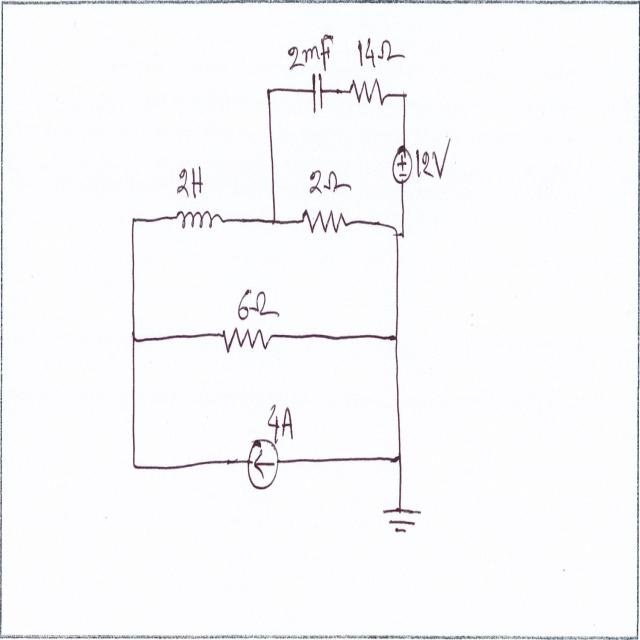 2mF 14Ω
12V
2H 2Ω
6Ω
4A